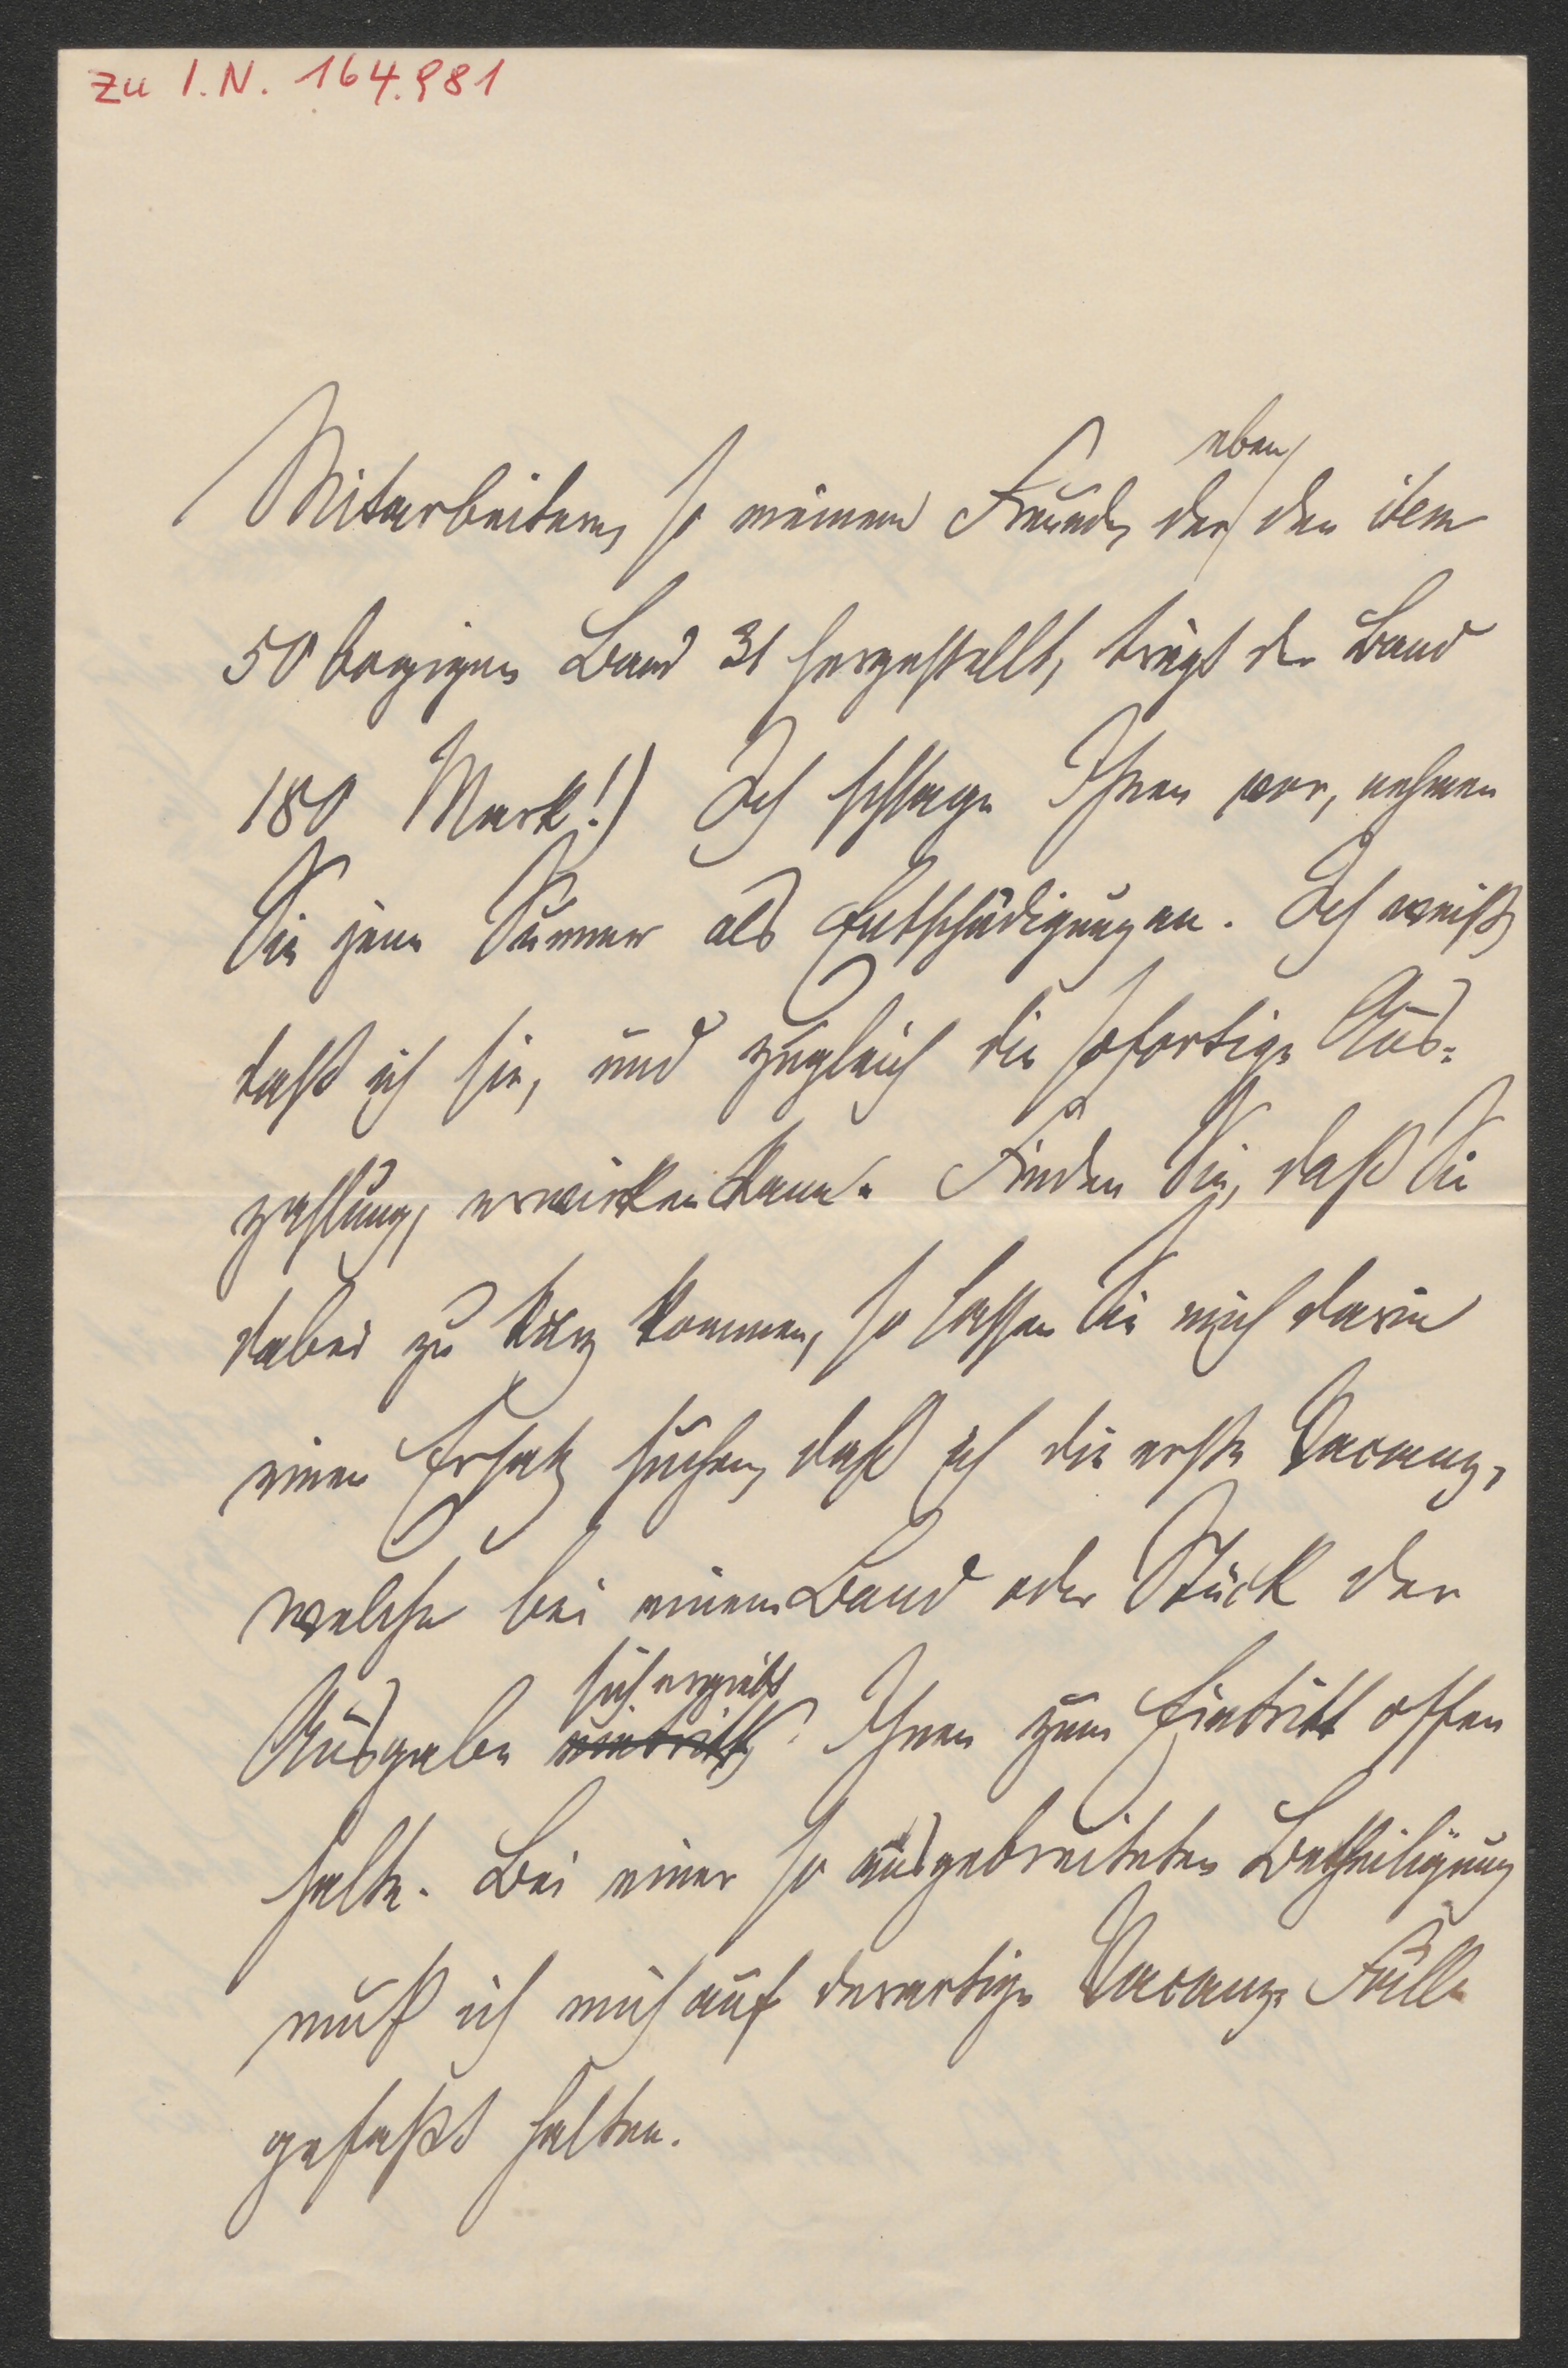 zu I.N. 164.981
eben
Mitarbeitern, so meinem Freunde, der den
50bogigen Band 31 hergestellt, trägt der Band
180 Mark!) Ich schlage Ihnen vor, nehmen
Sie jene Summe als Entschädigung an. Ich weiß,
daß ich sie, und zugleich die sofortige Aus-
zahlung, erwirken kann. Finden Sie, daß Sie
dabei zu kurz kommen, so lassen Sie mich darin
einen Ersatz suchen, daß ich die erste Vacanz,
welche bei einem Band oder Stück der
sich ergiebt
Ausgabe eintritt, Ihnen zum Eintritt offen
halte. Bei einer so ausgebreiteten Betheiligung
muß ich mich auf derartige Vacanz-Fälle
gefaßt halten.